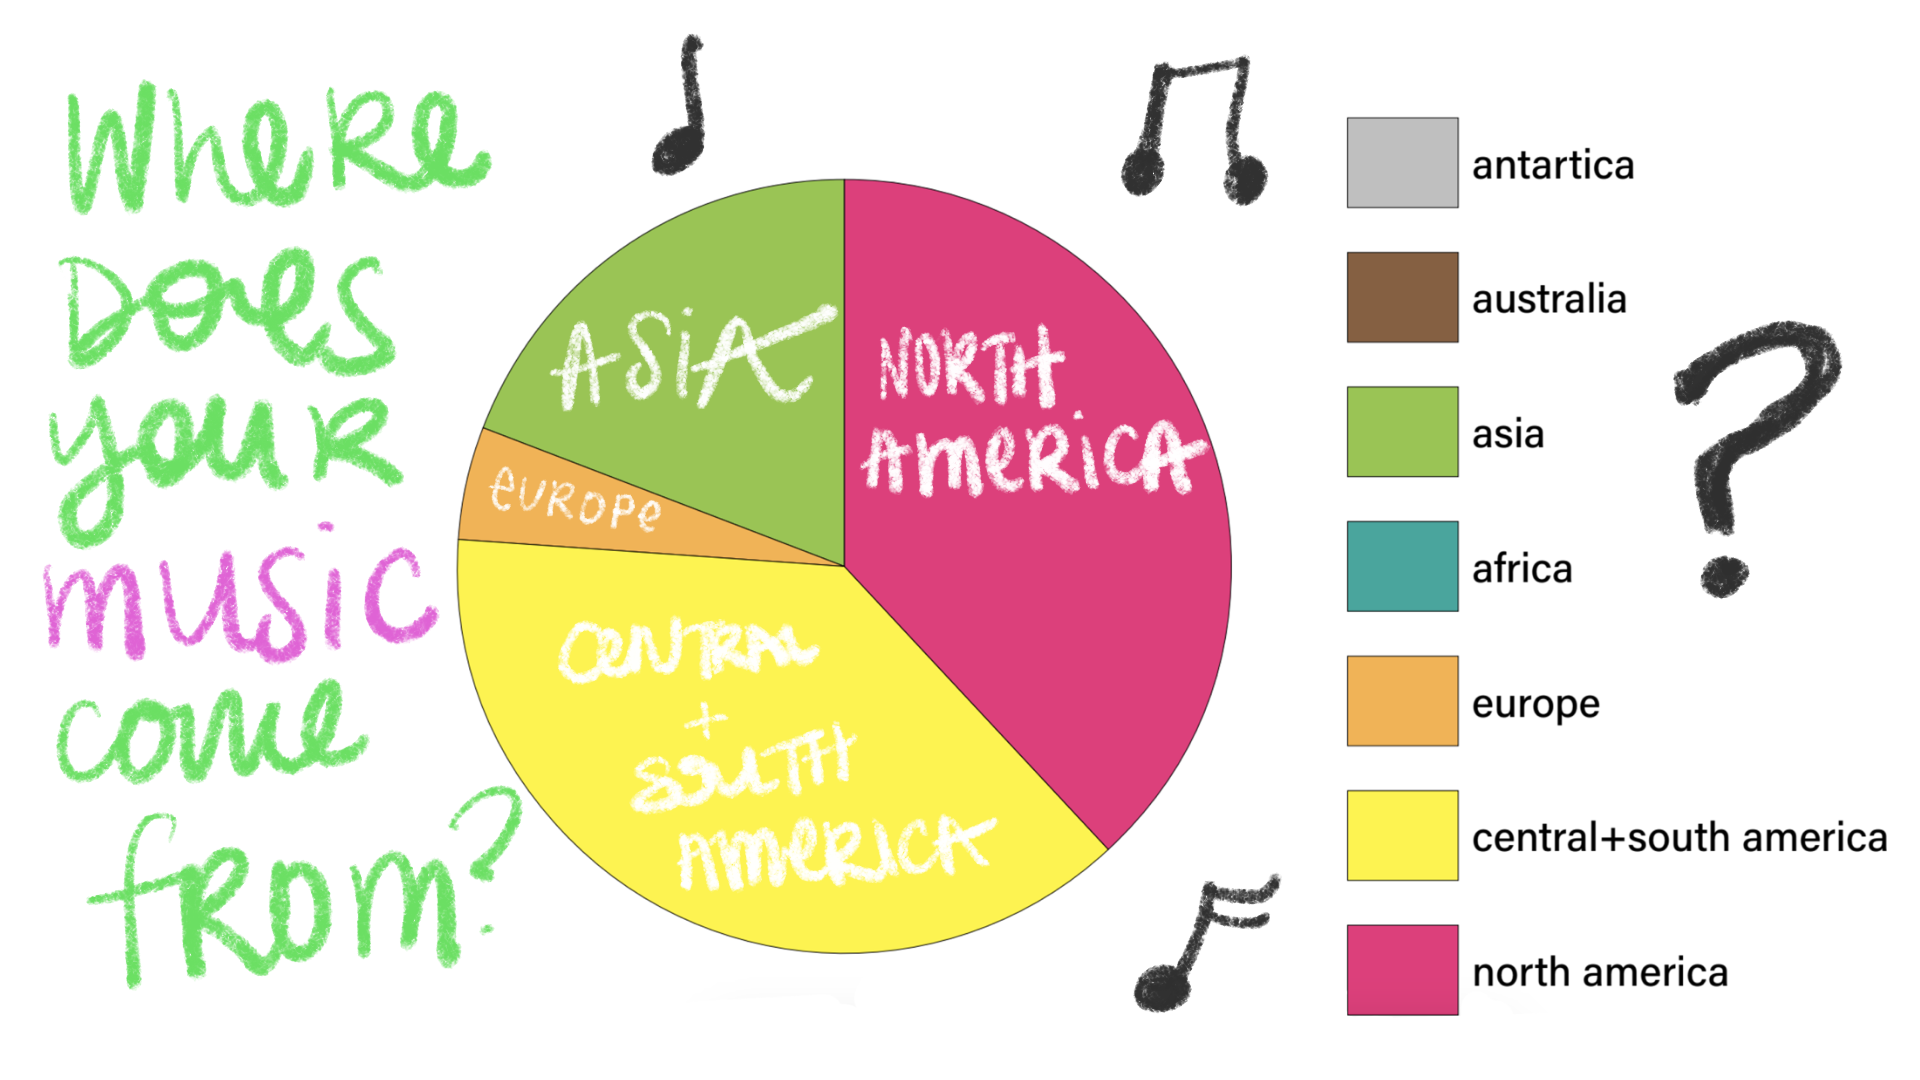 WheRe
Does
youR
music
come
fRom?
ASiA
NORTH
AmeRiCA
euRope
CeNTRAL
+
SOUTH
AmeRiCA
antartica
australia
asia
africa
europe
central+south america
north america
?